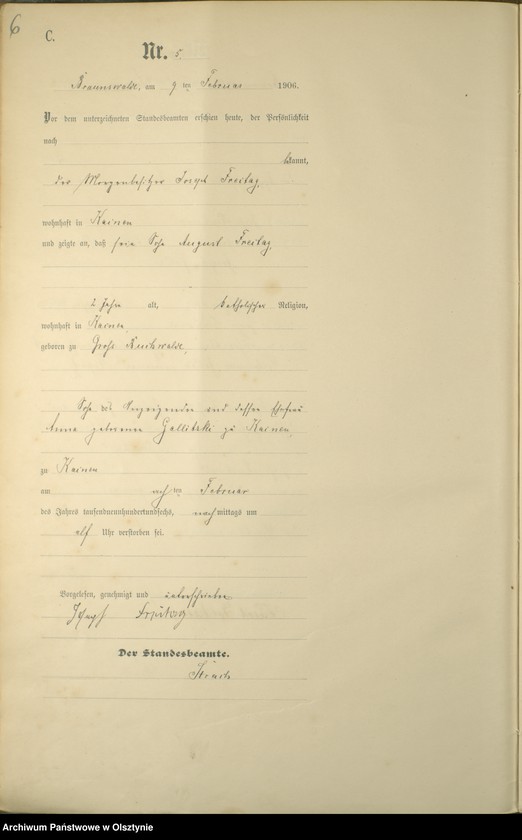 6
C.
Nr. 5.
Braunswalde, am 9 ten Februar 1906.
Vor dem unterzeichneten Standesbeamten erschien heute, der Persönlichkeit
nach
kannt,
der Morgenbesitzer Joseph Freitag,
wohnhaft in Kainen
und zeigte an, daß sein Sohn August Freitag,
2 Jahre alt, katholischer Religion,
wohnhaft in Kainen,
geboren zu Groß
Sohn des Anzeigenden und dessen Ehefrau
Anna geborenen zu Kainen,
zu Kainen
am ten Februar
des Jahres tausendneunhundertundsechs, nachmittags um
elf Uhr verstorben sei.
Vorgelesen, genehmigt und unterschrieben
Joseph Freitag
Der Standesbeamte.
Archiwum Państwowe w Olsztynie